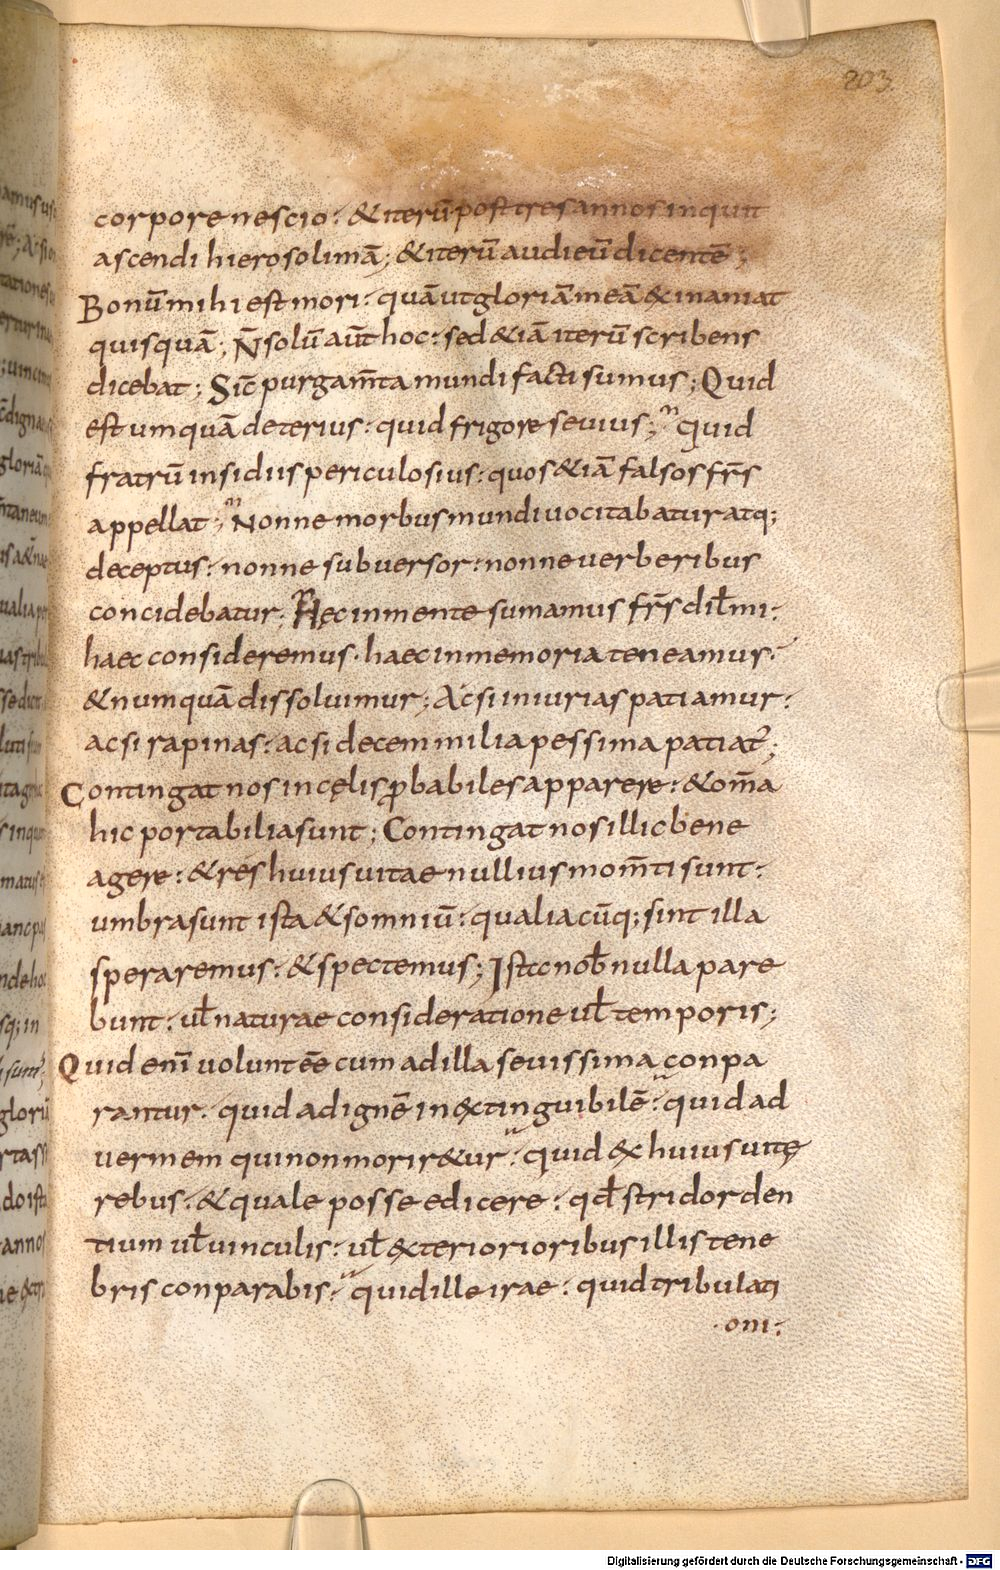 203
corpore nescio : & iterū post tres annos inquit
ascendi hierosolimā ; & iterū audi eū dicentē ;
Bonū mihi est mori : quā ut gloriā meā exinaniat
quisquā ; N̄ solū aūt hoc : sed &iā iterū scribens
dicebat ; Sic̄ purgam̄ta mundi facti sumus ; Quid
est umquā deterius : quid frigore sevius ; quid
fratrū insidiis periculosius : quos &iā falsos fr̄s
appellat ; Nonne morbus mundi uocitabatur atq;
deceptus : nonne subversor : nonne verberibus
concidebatur ; Hęc in mente sumamus fr̄s dil̄mi :
haec consideremus · haec in memoria teneamus :
& numquā dissoluimur ; Ac si iniurias patiamur :
ac si rapinas : ac si decem milia pessima patiat̄ ;
Contingat nos in cęlis ꝓbabiles apparere : & om̄a
hic portabilia sunt ; Contingat nos illic bene
agere : & res huius uitae nullius mom̄ti sunt :
umbra sunt ista & somniū : qualiacūq; sint illa
speraremus : & spectemus ; Istic nob̄ nulla pare
bunt : ul̄ naturae consideratione ul̄ temporis ;
Quid eni̅ uolunt eē cum ad illa sevissima conpa
rantur . quid ad ignē inextinguibilē : quid ad
vermem qui non morir&ur : quid ex huius uitę
rebus : & quale posse edicere : qd̄ stridor den
tium ul̄ uinculis : ul̄ exteriorioribus illis tene
bris conparabis : quid ille irae : quid tribulati
· oni :
Digitalisierung gefördert durch die Deutsche Forschungsgemeinschaft - DFG